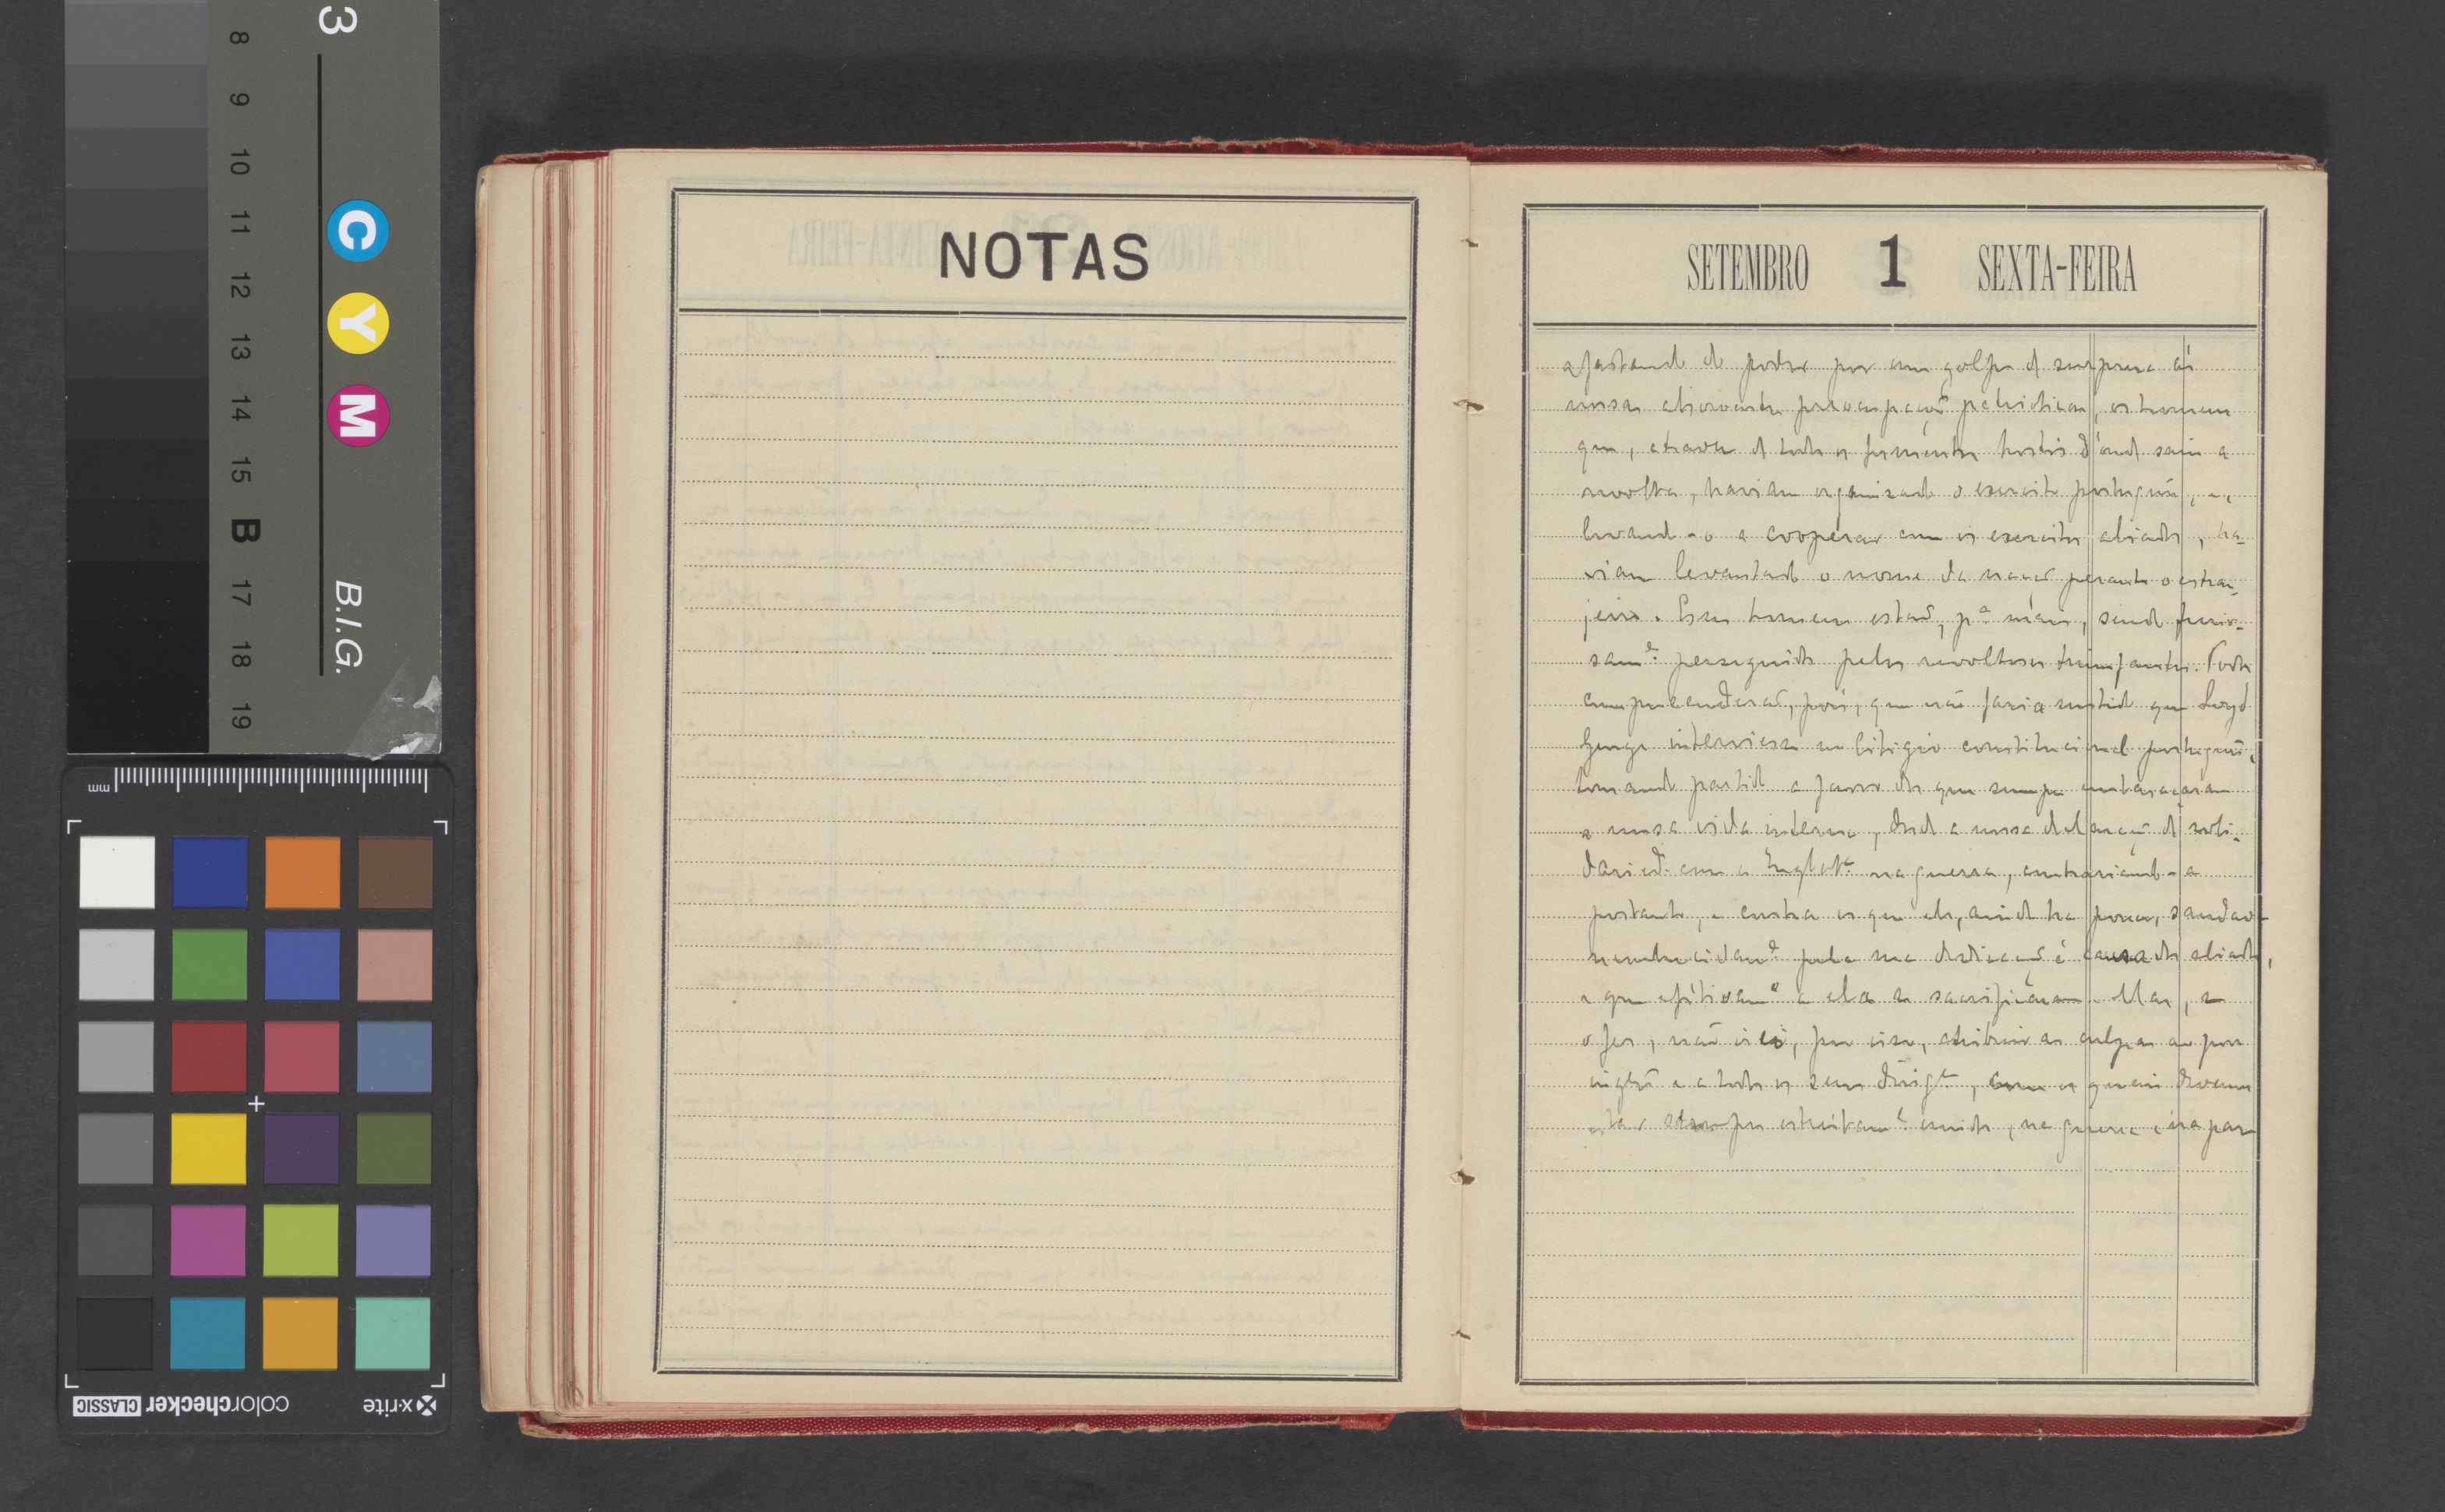 3
8
9
10
11
12
13
14
15
B
17
18
19
C
Y
M
B.I.G.
mm
x-rite
colorchecker CLASSIC
NOTAS
SETEMBRO 1 SEXTA-FEIRA
afastando do poder por um golpe de surpresa às
nossas preocupações patrioticas, os homens
que, atraves de todos os hostis d'onde saiu a
revolta, haviam organisado o exercito português, e,
levando-o a cooperar com os exercitos aliados, ha-
viam levantado o nome da nação perante o estran-
jeiro. Esses homens estão, pª mais, sendo furio-
samᵉ perseguidos pelos revoltosos triunfantes. Todos
compreenderão, pois, que não faria sentido que Lloyd
George interviesse no litigio constitucional português,
tomando partido a favor dos que sempre embaraçaram
a nossa vida interna, desde a nossa declaração de soli-
daried. com a Inglatª na guerra, contrariando-a
portanto, e contra os que ele, ainda ha pouco, saudava
pela sua dedicação á causa dos aliados,
e que efétivamᵉ a ela se sacrificaram. Mas, se
o fez, não irei, por isso, atribuir as culpas ao povo
inglês e a todos os seus dirigᵉˢ, com os quais devemos
estar sempre estreitamᵉ unidos, na guerra e na paz